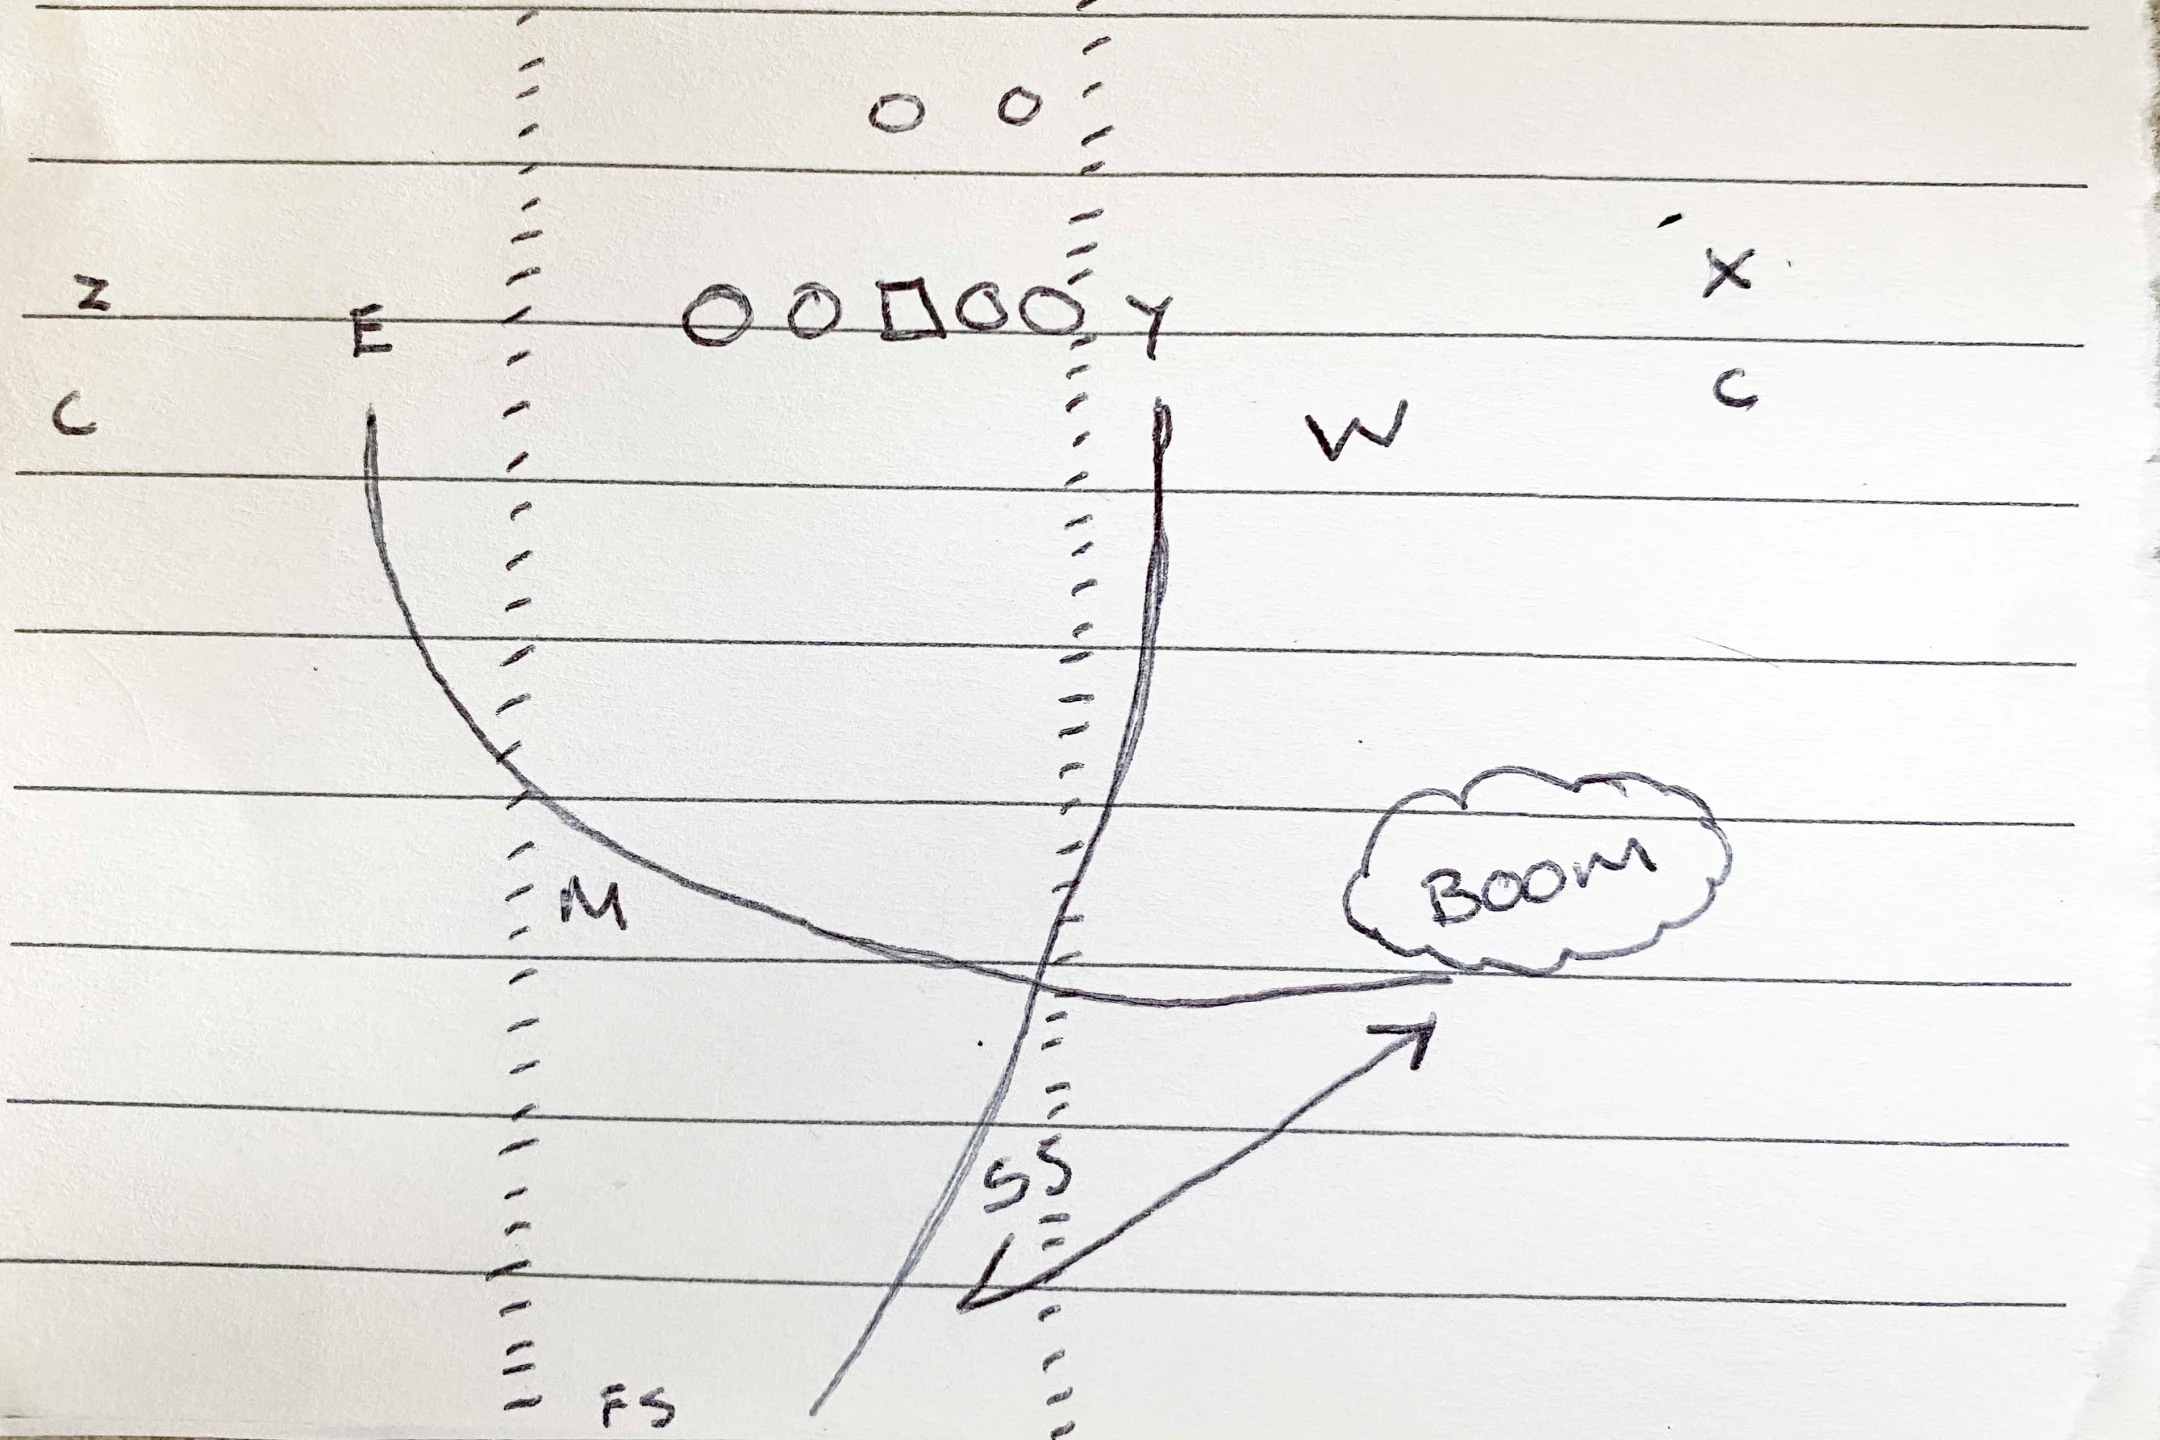 Z E Y X
C W C
M BOOM
SS
FS